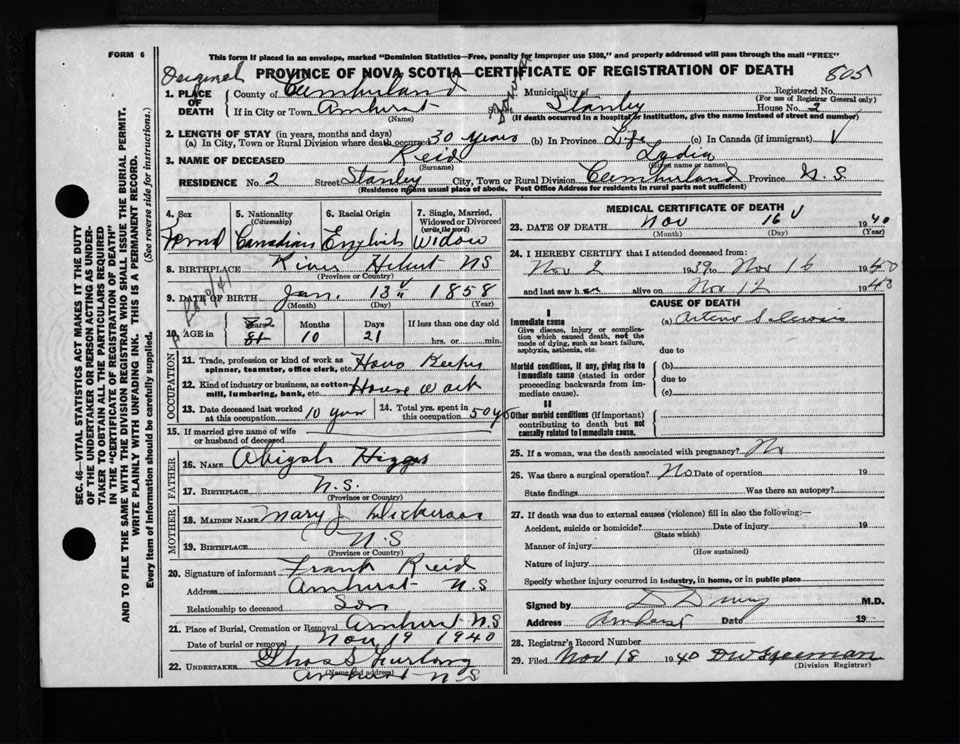 FORM 6
This form if placed in an envelope, marked "Dominion Statistics—Free, penalty for improper use $300," and properly addressed will pass through the mail "FREE"
PROVINCE OF NOVA SCOTIA—CERTIFICATE OF REGISTRATION OF DEATH
805
1. PLACE OF DEATH
County of Cumberland Municipality of Registered No.
(For use of Registrar General only)
If in City or Town Amherst Street Stanley House No. 2
(Name) (If death occurred in a hospital or institution, give name instead of street and number)
2. LENGTH OF STAY (in years, months and days)
(a) In City, Town or Rural Division where death occurred 30 years (b) In Province Life (c) In Canada (if immigrant)
3. NAME OF DECEASED Reid Lydia
(Surname) (Given name or names)
RESIDENCE No. 2 Street Stanley City, Town or Rural Division Cumberland Province N S
(Residence means usual place of abode. Post Office Address for residents in rural parts not sufficient)
4. Sex
5. Nationality (Citizenship)
6. Racial Origin
7. Single, Married, Widowed or Divorced (write the word)
Canadian English Widow
8. BIRTHPLACE River Hebert NS
(Province or Country)
9. DATE OF BIRTH Jan. 13 1858
(Month) (Day) (Year)
10. AGE in Years Months Days If less than one day old
82
81 10 21 hrs. or min.
OCCUPATION
11. Trade, profession or kind of work as spinner, teamster, office clerk, etc. Hous Keeper
12. Kind of industry or business, as cotton mill, lumbering, bank, etc. House Work
13. Date deceased last worked at this occupation 10 years
14. Total yrs. spent in this occupation 50 yrs
15. If married give name of wife or husband of deceased
FATHER
16. NAME Abigah Higgs
17. BIRTHPLACE N.S.
(Province or Country)
MOTHER
18. MAIDEN NAME Mary J
19. BIRTHPLACE N.S
(Province or Country)
20. Signature of informant Frank Reid
Address Amherst N.S
Relationship to deceased Son
21. Place of Burial, Cremation or Removal Amherst N.S
Date of burial or removal Nov 19 1940
22. UNDERTAKER Furlong
(Name and address)
Amherst N S
MEDICAL CERTIFICATE OF DEATH
23. DATE OF DEATH Nov 16 1940
(Month) (Day) (Year)
24. I HEREBY CERTIFY that I attended deceased from:
Nov 2 1939 to Nov 16 1940
and last saw her alive on Nov 12 1940
CAUSE OF DEATH
I
Immediate cause (a)
Give disease, injury or complication which caused death, not the mode of dying, such as heart failure, asphyxia, asthenia, etc.
due to
Morbid conditions, if any, giving rise to immediate cause (stated in order proceeding backwards from immediate cause)
(b)
due to
(c)
II
Other morbid conditions (if important) contributing to death but not causally related to immediate cause.
25. If a woman, was the death associated with pregnancy? No
26. Was there a surgical operation? No Date of operation 19
State findings Was there an autopsy?
27. If death was due to external causes (violence) fill in also the following:—
Accident, suicide or homicide? Date of injury 19
(State which)
Manner of injury
(How sustained)
Nature of injury
Specify whether injury occurred in industry, in home, or in public place
Signed by M.D.
Address Amherst Date 19
28. Registrar's Record Number
29. Filed Nov 18 1940
(Division Registrar)
SEC. 46—VITAL STATISTICS ACT MAKES IT THE DUTY
OF THE UNDERTAKER OR PERSON ACTING AS UNDERTAKER
TO OBTAIN ALL THE PARTICULARS REQUIRED
IN THE "CERTIFICATE OF REGISTRATION OF DEATH"
AND TO FILE THE SAME WITH THE DIVISION REGISTRAR WHO SHALL ISSUE THE BURIAL PERMIT.
WRITE PLAINLY WITH UNFADING INK. THIS IS A PERMANENT RECORD.
Every item of information should be carefully supplied. (See reverse side for instructions.)